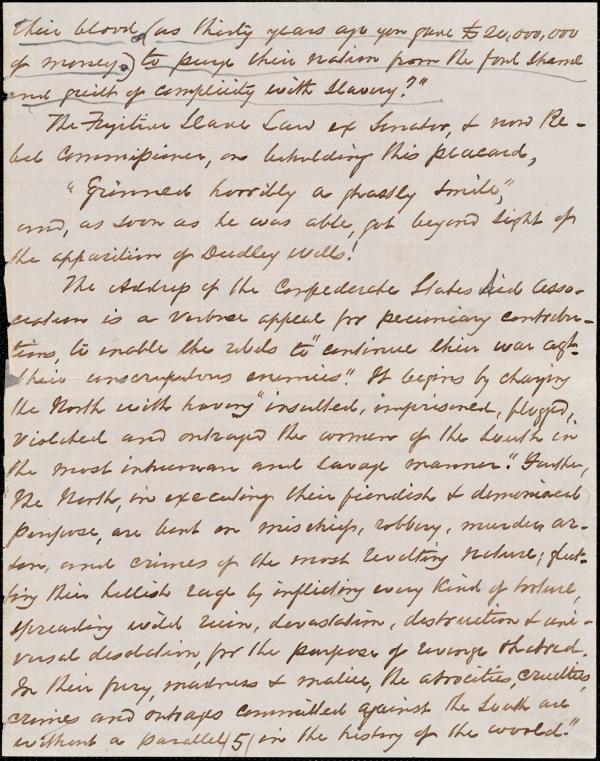 their blood (as thirty years ago you gave £20,000,000
of money) to purge their nation from the foul shame
and guilt of complicity with Slavery?"
The Fugitive Slave Law ex Senator, & now Re-
bel Commissioner, on beholding this placard,
"Grinned horribly a ghastly smile",
and, as soon as he was able, got beyond sight of
the apparition of Dudley Wills!
The Address of the Confederate States Aid Asso-
ciation is a verbose appeal for pecuniary contribu-
tions, to enable the rebels to "continue their war agt.
their unscrupulous enemies". It begins by charging
the North with having "insulted, imprisoned, flogged,
violated and outraged the women of the South in
the most inhuman and savage manner". Further,
"The North, in executing their fiendish & demoniacal
purpose, are bent on mischief, robbery, murder, ar-
son, and crimes of the most revolting nature; glut-
ting their hellish rage by inflicting every kind of torture,
spreading wild ruin, devastation, destruction & uni-
versal desolation, for the purpose of revenge & hatred.
In their fury, madness & malice, the atrocities, cruelties,
crimes and outrages committed against the South are
without a parallel (5) in the history of the world."